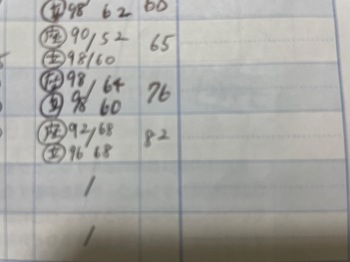 立 98 62 60
座 90/52 65
立 98/60
座 98/64 76
立 98 60
座 92/68 82
立 96 68
/
/